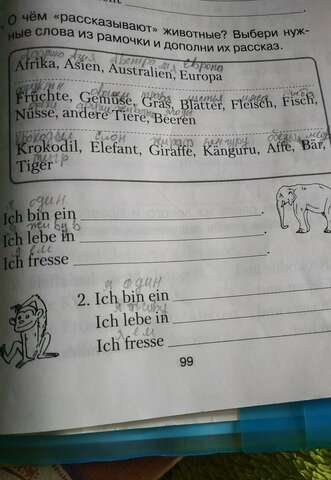 О чём «рассказывают» животные? Выбери нуж-
ные слова из рамочки и дополни их рассказ.
Afrika, Asien, Australien, Europa
Früchte, Gemüse, Gras, Blätter, Fleisch, Fisch,
Nüsse, andere Tiere, Beeren
Krokodil, Elefant, Giraffe, Känguru, Affe, Bär,
тигр
Tiger
я один
Ich bin ein
я живу в
Ich lebe in
я ем
Ich fresse
я один
2. Ich bin ein
я живу
Ich lebe in
я ем
Ich fresse
99